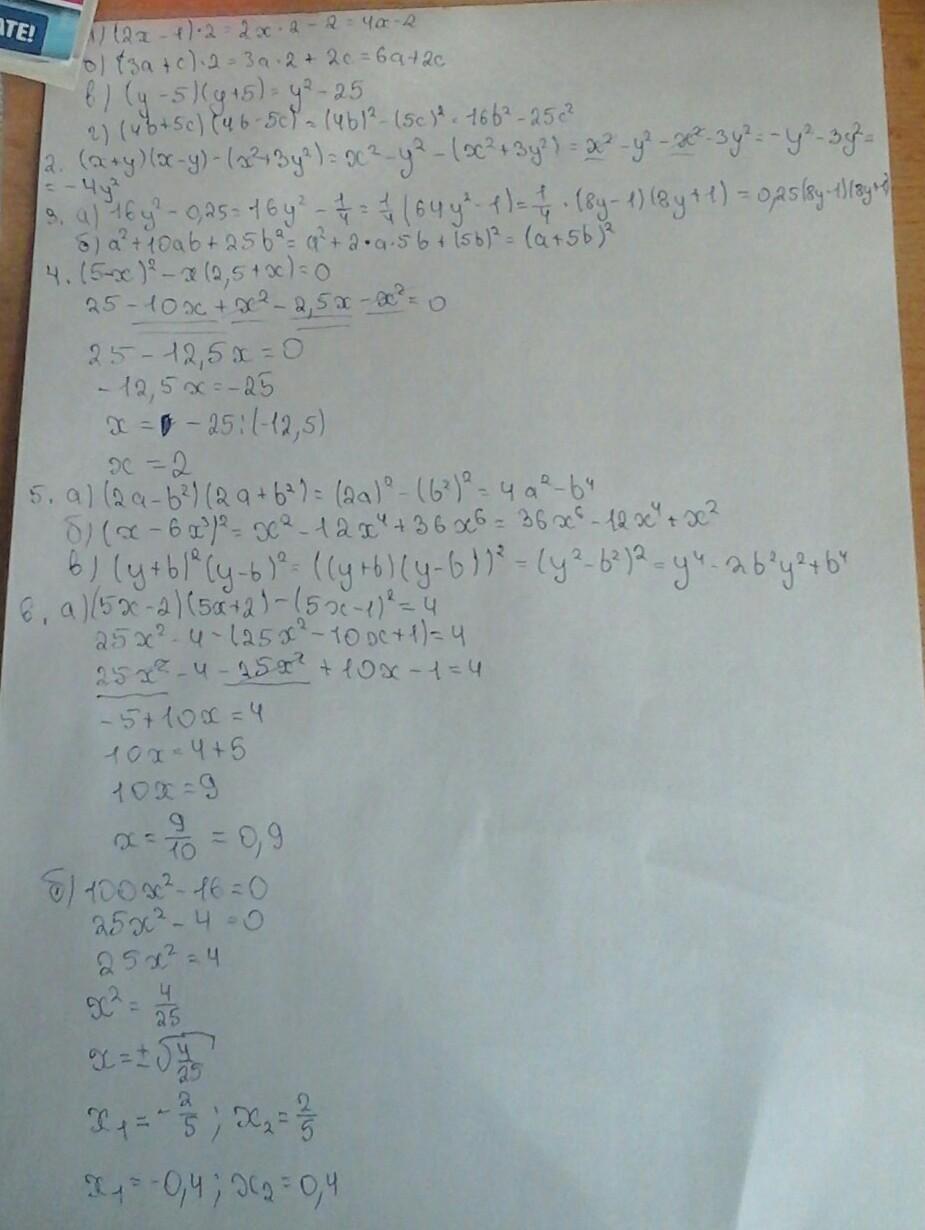 ATE!
а) (2x - 1)·2 = 2x·2 - 2 = 4x - 2
б) (3a + c)·2 = 3a·2 + 2c = 6a + 2c
в) (y - 5)(y + 5) = y² - 25
г) (4b + 5c)(4b - 5c) = (4b)² - (5c)² = 16b² - 25c²
2. (x + y)(x - y) - (x² + 3y²) = x² - y² - (x² + 3y²) = x² - y² - x² - 3y² = -y² - 3y² =
= -4y²
3. а) 16y² - 0,25 = 16y² - 1/4 = 1/4 (64y² - 1) = 1/4 · (8y - 1)(8y + 1) = 0,25(8y - 1)(8y + 1)
б) a² + 10ab + 25b² = a² + 2·a·5b + (5b)² = (a + 5b)²
4. (5 - x)² - x(2,5 + x) = 0
25 - 10x + x² - 2,5x - x² = 0
25 - 12,5x = 0
-12,5x = -25
x = -25:(-12,5)
x = 2
5. а) (2a - b²)(2a + b²) = (2a)² - (b²)² = 4a² - b⁴
б) (x - 6x³)² = x² - 12x⁴ + 36x⁶ = 36x⁶ - 12x⁴ + x²
в) (y + b)²(y - b)² = ((y + b)(y - b))² = (y² - b²)² = y⁴ - 2b²y² + b⁴
6. а) (5x - 2)(5x + 2) - (5x - 1)² = 4
25x² - 4 - (25x² - 10x + 1) = 4
25x² - 4 - 25x² + 10x - 1 = 4
-5 + 10x = 4
10x = 4 + 5
10x = 9
x = 9/10 = 0,9
б) 100x² - 16 = 0
25x² - 4 = 0
25x² = 4
x² = 4/25
x = ±√(4/25)
x₁ = -2/5 ; x₂ = 2/5
x₁ = -0,4 ; x₂ = 0,4